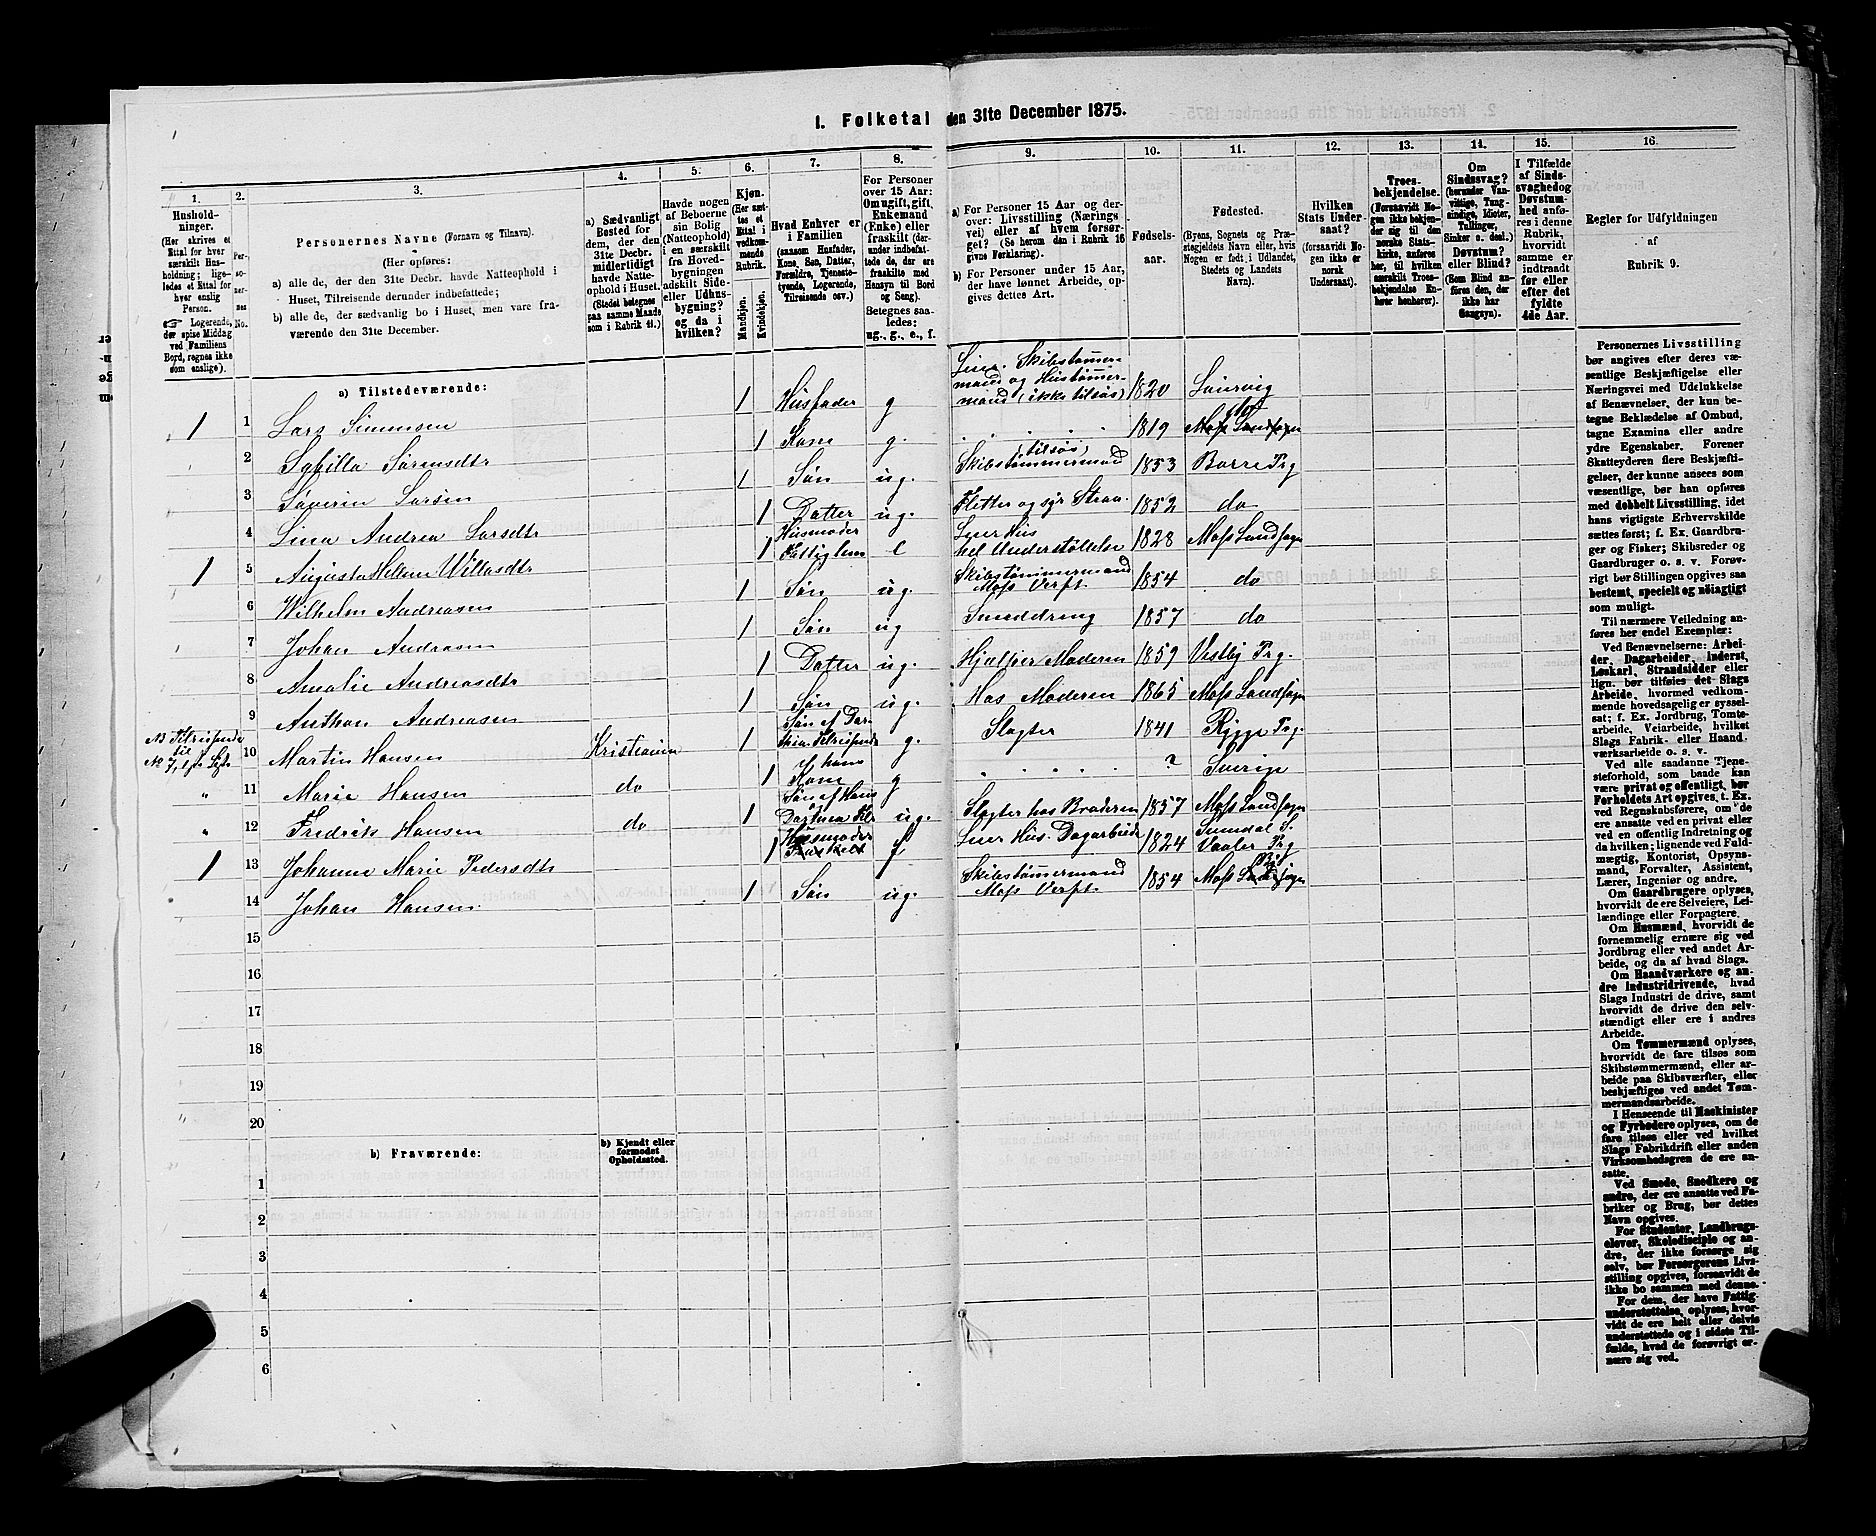 I. Folketal den 31te December 1875.
1.
Hushold-
ninger.
(Her skrives et
Ettal for hver
særskilt Hus-
holdning; lige-
ledes et Ettal for
hver enslig
Person.
☞ Logerende,
der spise Middag
ved Familiens
Bord, regnes ikke
som enslige).
2.
Per-
so-
ner-
nes
No.
3.
Personernes Navne (Fornavn og Tilnavn).
(Her opføres:
a) alle de, der den 31te Decbr. havde Natteophold i
Huset, Tilreisende derunder indbefattede;
b) alle de, der sædvanlig bo i Huset, men vare fra-
værende den 31te December.
4.
a) Sædvanligt
Bosted for
dem, der den
31te Decbr.
midlertidigt
havde Natte-
ophold i Huset.
(Stedet betegnes
paa samme Maade
som i Rubrik 11.)
5.
Havde nogen
af Beboerne
sin Bolig
(Natteophold)
i en særskilt
fra Hoved-
bygningen
adskilt Side-
eller Udhus-
bygning?
og da i
hvilken?
6.
Kjøn.
(Her sæt-
tes et
Ettal i
vedkom-
mende
Rubrik.
Mandkjøn.
Kvindekjøn.
7.
Hvad Enhver er
i Familien
(saasom Husfader,
Kone, Søn, Datter,
Forældre, Tjeneste-
tyende, Logerende,
Tilreisende osv.)
8.
For Personer
over 15 Aar:
Om ugift, gift,
Enkemand
(Enke) eller
fraskilt (der-
under indbefat-
tede de, der ere
fraskilte med
Hensyn til Bord
og Seng).
Betegnes saa-
ledes:
ug., g., e., f.
9.
a) For Personer 15 Aar og der-
over: Livsstilling (Nærings-
vei) eller af hvem forsør-
get? (Se herom den i Rubrik 16
givne Forklaring).
b) For Personer under 15 Aar,
der have lønnet Arbeide, op-
gives dettes Art.
10.
Fødsels-
aar.
11.
Fødested.
(Byens, Sognets og Præ-
stegjeldets Navn eller, hvis
Nogen er født i Udlandet,
Stedets og Landets
Navn).
12.
Hvilken
Stats Under-
saat?
(forsaavidt No-
gen ikke er
norsk
Undersaat).
13.
Troes-
bekjendelse.
(Forsaavidt No-
gen ikke bekjen-
der sig til den
norske Stats-
kirke, anføres
her, til hvilken
særskilt Troes-
bekjendelse En-
hver henhører).
14.
Om
Sindssvag?
(herunder Van-
vittige, Tung-
sindige, Idioter,
Tullinger,
Sinker o. desl.)
Døvstum?
eller Blind?
(Som Blind an-
føres den, der
ikke har
Gangsyn).
15.
I Tilfælde
af Sinds-
svaghed og
Døvstum-
hed anfø-
res i denne
Rubrik,
hvorvidt
samme er
indtraadt
før eller
efter det
fyldte
4de Aar.
16.
Regler for Udfyldningen
af
Rubrik 9.
a) Tilstedeværende:
1 1 Lars Simensen 1 Husfader g Leier. Skibstømmer-
mand og Hustømmer-
mand (ikke tilsøs) 1820 Laurvig
2 Sybilla Sørensdtr 1 Kone g. 1819 Moss Landsogn
3 Søverin Larsen 1 Søn ug. Skibstømmermand (tilsøs) 1853 Borre Prg
4 Lina Andrea Larsdtr 1 Datter ug. Fletter og syr Straa. 1852 do
1 5 Augusta Helene Willasdtr 1 Husmoder
Fattiglem e Leier Hus
hel Understøttelse 1828 Moss Landsogn
6 Wilhelm Andreasen 1 Søn ug. Skibstømmermand
Moss Verft 1854 do
7 Johan Andreasen 1 Søn ug Smeddreng 1857 do
8 Amalie Andreasdtr 1 Datter ug. Hjælper Moderen 1859 Vestby Prg.
9 Anthon Andreasen 1 Søn ug. Hos Moderen 1865 Moss Landsogn
10 Martin Hansen Kristiania 1 Søn af g. Slagter 1841 Rygge Prg.
" 11 Marie Hansen do 1 Kone g ? Sverige
" 12 Fredrik Hansen do 1 Søn af Hans ug. Slagter hos Broderen 1857 Moss Landsogn
1 13 Johanne Marie Pedersdtr 1 Husmoder
Fraskilt f Leier Hus. Dagarbeide 1824 Svindal S.
Vaaler Prg
14 Johan Hansen 1 Søn ug. Skibstømmermand
Moss Verft 1854 Moss By
15
16
17
18
19
20
b) Fraværende:
b) Kjendt eller
formodet
Opholdssted.
1
2
3
4
5
6
Personernes Livsstilling
bør angives efter deres væ-
sentlige Beskjæftigelse eller
Næringsvei med Udelukkelse
af Benævnelser, der kun be-
tegne Beklædelse af Ombud,
tagne Examina eller andre
ydre Egenskaber. Forener
Skatteyderen flere Beskjæfti-
gelser, der kunne ansees som
væsentlige, bør han opføres
med dobbelt Livsstilling, idet
hans vigtigste Erhvervskilde
sættes først; f. Ex. Gaardbru-
ger og Fisker; Skibsreder og
Gaardbruger o. s. v. Forøv-
rigt bør Stillingen opgives saa
bestemt, specielt og nøiagtigt
som muligt.
Til nærmere Veiledning an-
føres her endel Exempler:
Ved Benævnelserne: Arbei-
der, Dagarbeider, Inderst,
Løskarl, Strandsidder eller
lign. bør tilføies det Slags
Arbeide, hvormed vedkom-
mende hovedsagelig er syssel-
sat; f. Ex. Jordbrug, Tomte-
arbeide, Veiarbeide, hvilket
Slags Fabrik- eller Haand-
værksarbeide o. s. v.
Ved alle saadanne Tjene-
steforhold, som baade kan
være privat og offentligt, bør
Forholdets Art opgives, t. Ex.
ved Regnskabsførere, om de
ere ansatte ved en privat eller
ved en offentlig Indretning og
da hvilken; lignende ved Fuld-
mægtig, Kontorist, Opsyns-
mand, Forvalter, Assistent,
Lærer, Ingeniør og andre.
Om Gaardbrugere oplyses,
hvorvidt de ere Selveiere, Lei-
lændinge eller Forpagtere.
Om Husmænd, hvorvidt de
fornemmelig ernære sig ved
Jordbrug eller ved andet Ar-
beide, og da af hvad Slags.
Om Haandværkere og an-
dre Industridrivende, hvad
Slags Industri de drive, samt
hvorvidt de drive den selv-
stændigt eller ere i andres
Arbeide.
Om Tømmermænd oplyses,
hvorvidt de fare tilsøs som
Skibstømmermænd, eller ar-
beide paa Skibsværfter, eller
beskjæftiges ved andet Tøm-
mermandsarbeide.
I Henseende til Maskinister
og Fyrbødere oplyses, om de
fare tilsøs eller ved hvilket
Slags Fabrikdrift eller anden
Virksomhedsgren de ere an-
satte.
Ved Smede, Snedkere og
andre, der ere ansatte ved Fa-
briker og Brug, bør dettes
Navn opgives.
For Studenter, Landbrugs-
elever, Skoledisciple og an-
dre, der ikke forsørge sig
selv, bør Forsørgerens Livs-
stilling opgives, forsaavidt de
ikke bo sammen med denne.
For dem, der have Fattig-
understøttelse, oplyses, hvor-
vidt de ere helt eller delvis
understøttede og i sidste Til-
fælde, hvad de forøvrigt er-
nære sig ved.